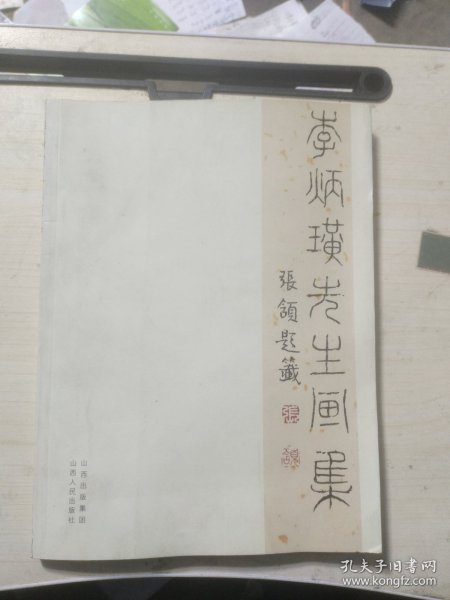 李炳璜先生画集
張頷題籤
張
頷
山西出版集团
山西人民出版社
孔夫子旧书网
www.kongfz.com